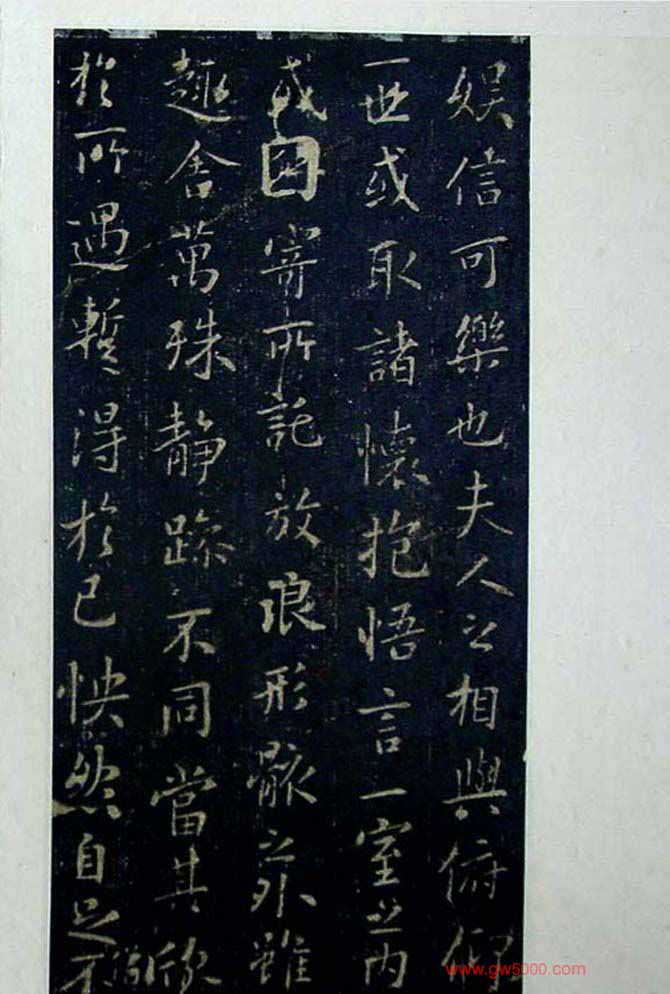 娱信可樂也夫人之相與俯仰
一世或取諸懷抱悟言一室之内
或因寄所託放浪形骸之外雖
趣舍萬殊静躁不同當其欣
於所遇暫得於己怏然自足不
www.gw5000.com